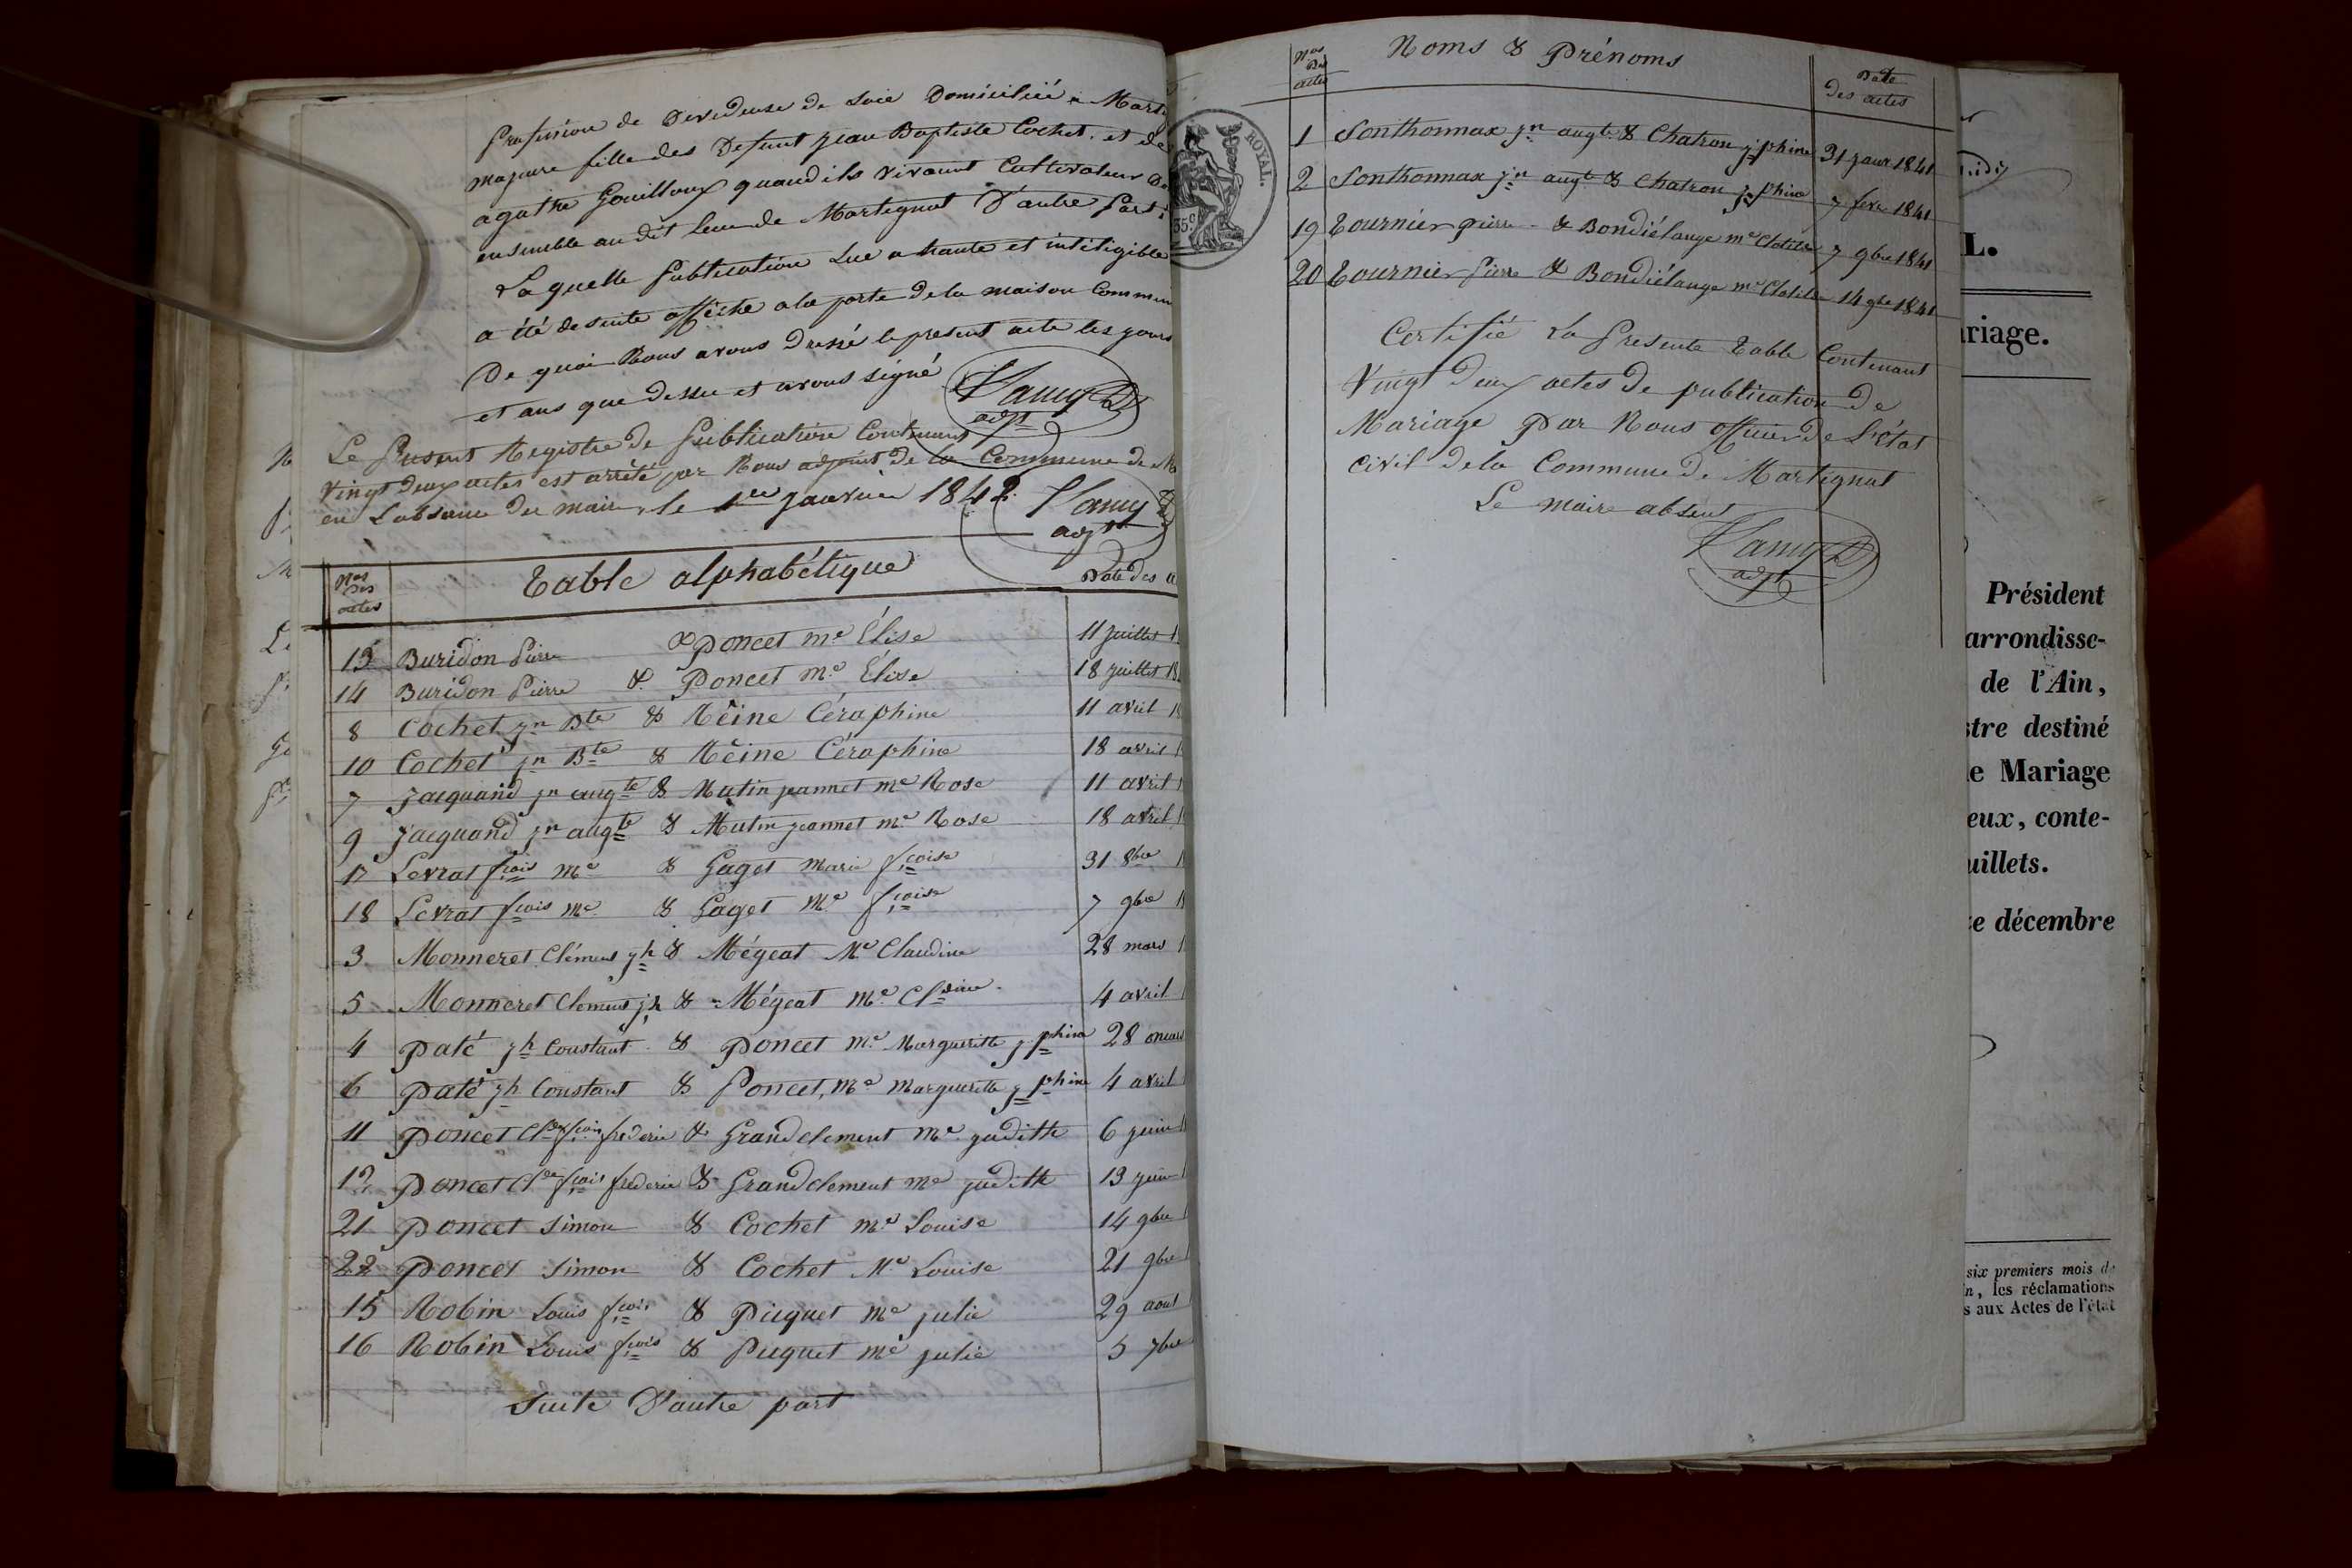 profession de Devideuse de soie Domiciliée a
majeure fille des Defunt jean Baptiste Cochet. et de
agathe Gouilloux quand ils vivaient Cultivateur
ensemble au dit lieu de Martignat D'autre part;
Laquelle publication Lue a haute et intiligible
a été de suite affiche a la porte de la maison
De quoi Nous avons Dressé le present acte les jours
et ans que dessu et avons signé
adjt
Le present Registre de publication Contenant
vingt deux actes est arrêté par Nous adjoint de la Commune de
en L'absence du maire, le 1er janvier 1842.
adjt
Nos Des actes Table alphabétique Date des
13 Buridon Pierre & Poncet me Élise 11 juillet
14 Buridon Pierre & Poncet me Élise 18 juillet
8 Cochet jn Bte & Rêine Céraphine 11 avril
10 Cochet jn Bte & Rêine Céraphine 18 avril
7 Jacquand jn augte & Mutin jeannet me Rose 11 avril
9 Jacquand jn augte & Mutin jeannet me Rose 18 avril
17 Levrat fcois me & Gaget marie fcoise 31 8bre
18 Levrat fcois me & Gaget me fcoise 7 9bre
3 Monneret Clément jh & Mégeat Me Claudine 28 mars
5 Monneret Clement jh & Mégeat me Cldine 4 avril
4 Paté jh Constant & Poncet me Margueritte jphine 28 mars
6 Paté jh Constant & Poncet, me Margueritte jphine 4 avril
11 Poncet Clde fcois frederic & Grandclement me judith 6 juin
12 Poncet Clde fcois frederic & Grandclement me judith 13 juin
21 Poncet Simon & Cochet me Louise 14 9bre
22 Poncet Simon & Cochet Me Louise 21 9bre
15 Robin Louis fcois & Piquet me julie 29 aout
16 Robin Louis fcois & Piquet me julie 5 7bre
Suite D'autre part
ROYAL.
35c
Nos Des actes Noms & Prénoms Date des actes
1 Sonthonnax jn augte & Chatron jphine 31 janr 1841
2 Sonthonnax jn augte & Chatron jphine 7 fevr 1841
19 Tournier pierre & Bondiélange me Clotilde 7 9bre 1841
20 Tournier Pierre & Bondiélange me Clotilde 14 9bre 1841
Certifié La presente Table Contenant
Vingt deux actes de publication de
Mariage par Nous officier de L'état
Civil de la Commune de Martignat
Le maire absent
adjt
L.
riage.
Président
arrondisse-
de l'Ain,
stre destiné
le Mariage
eux, conte-
uillets.
e décembre
six premiers mois de
n, les réclamations
s aux Actes de l'état